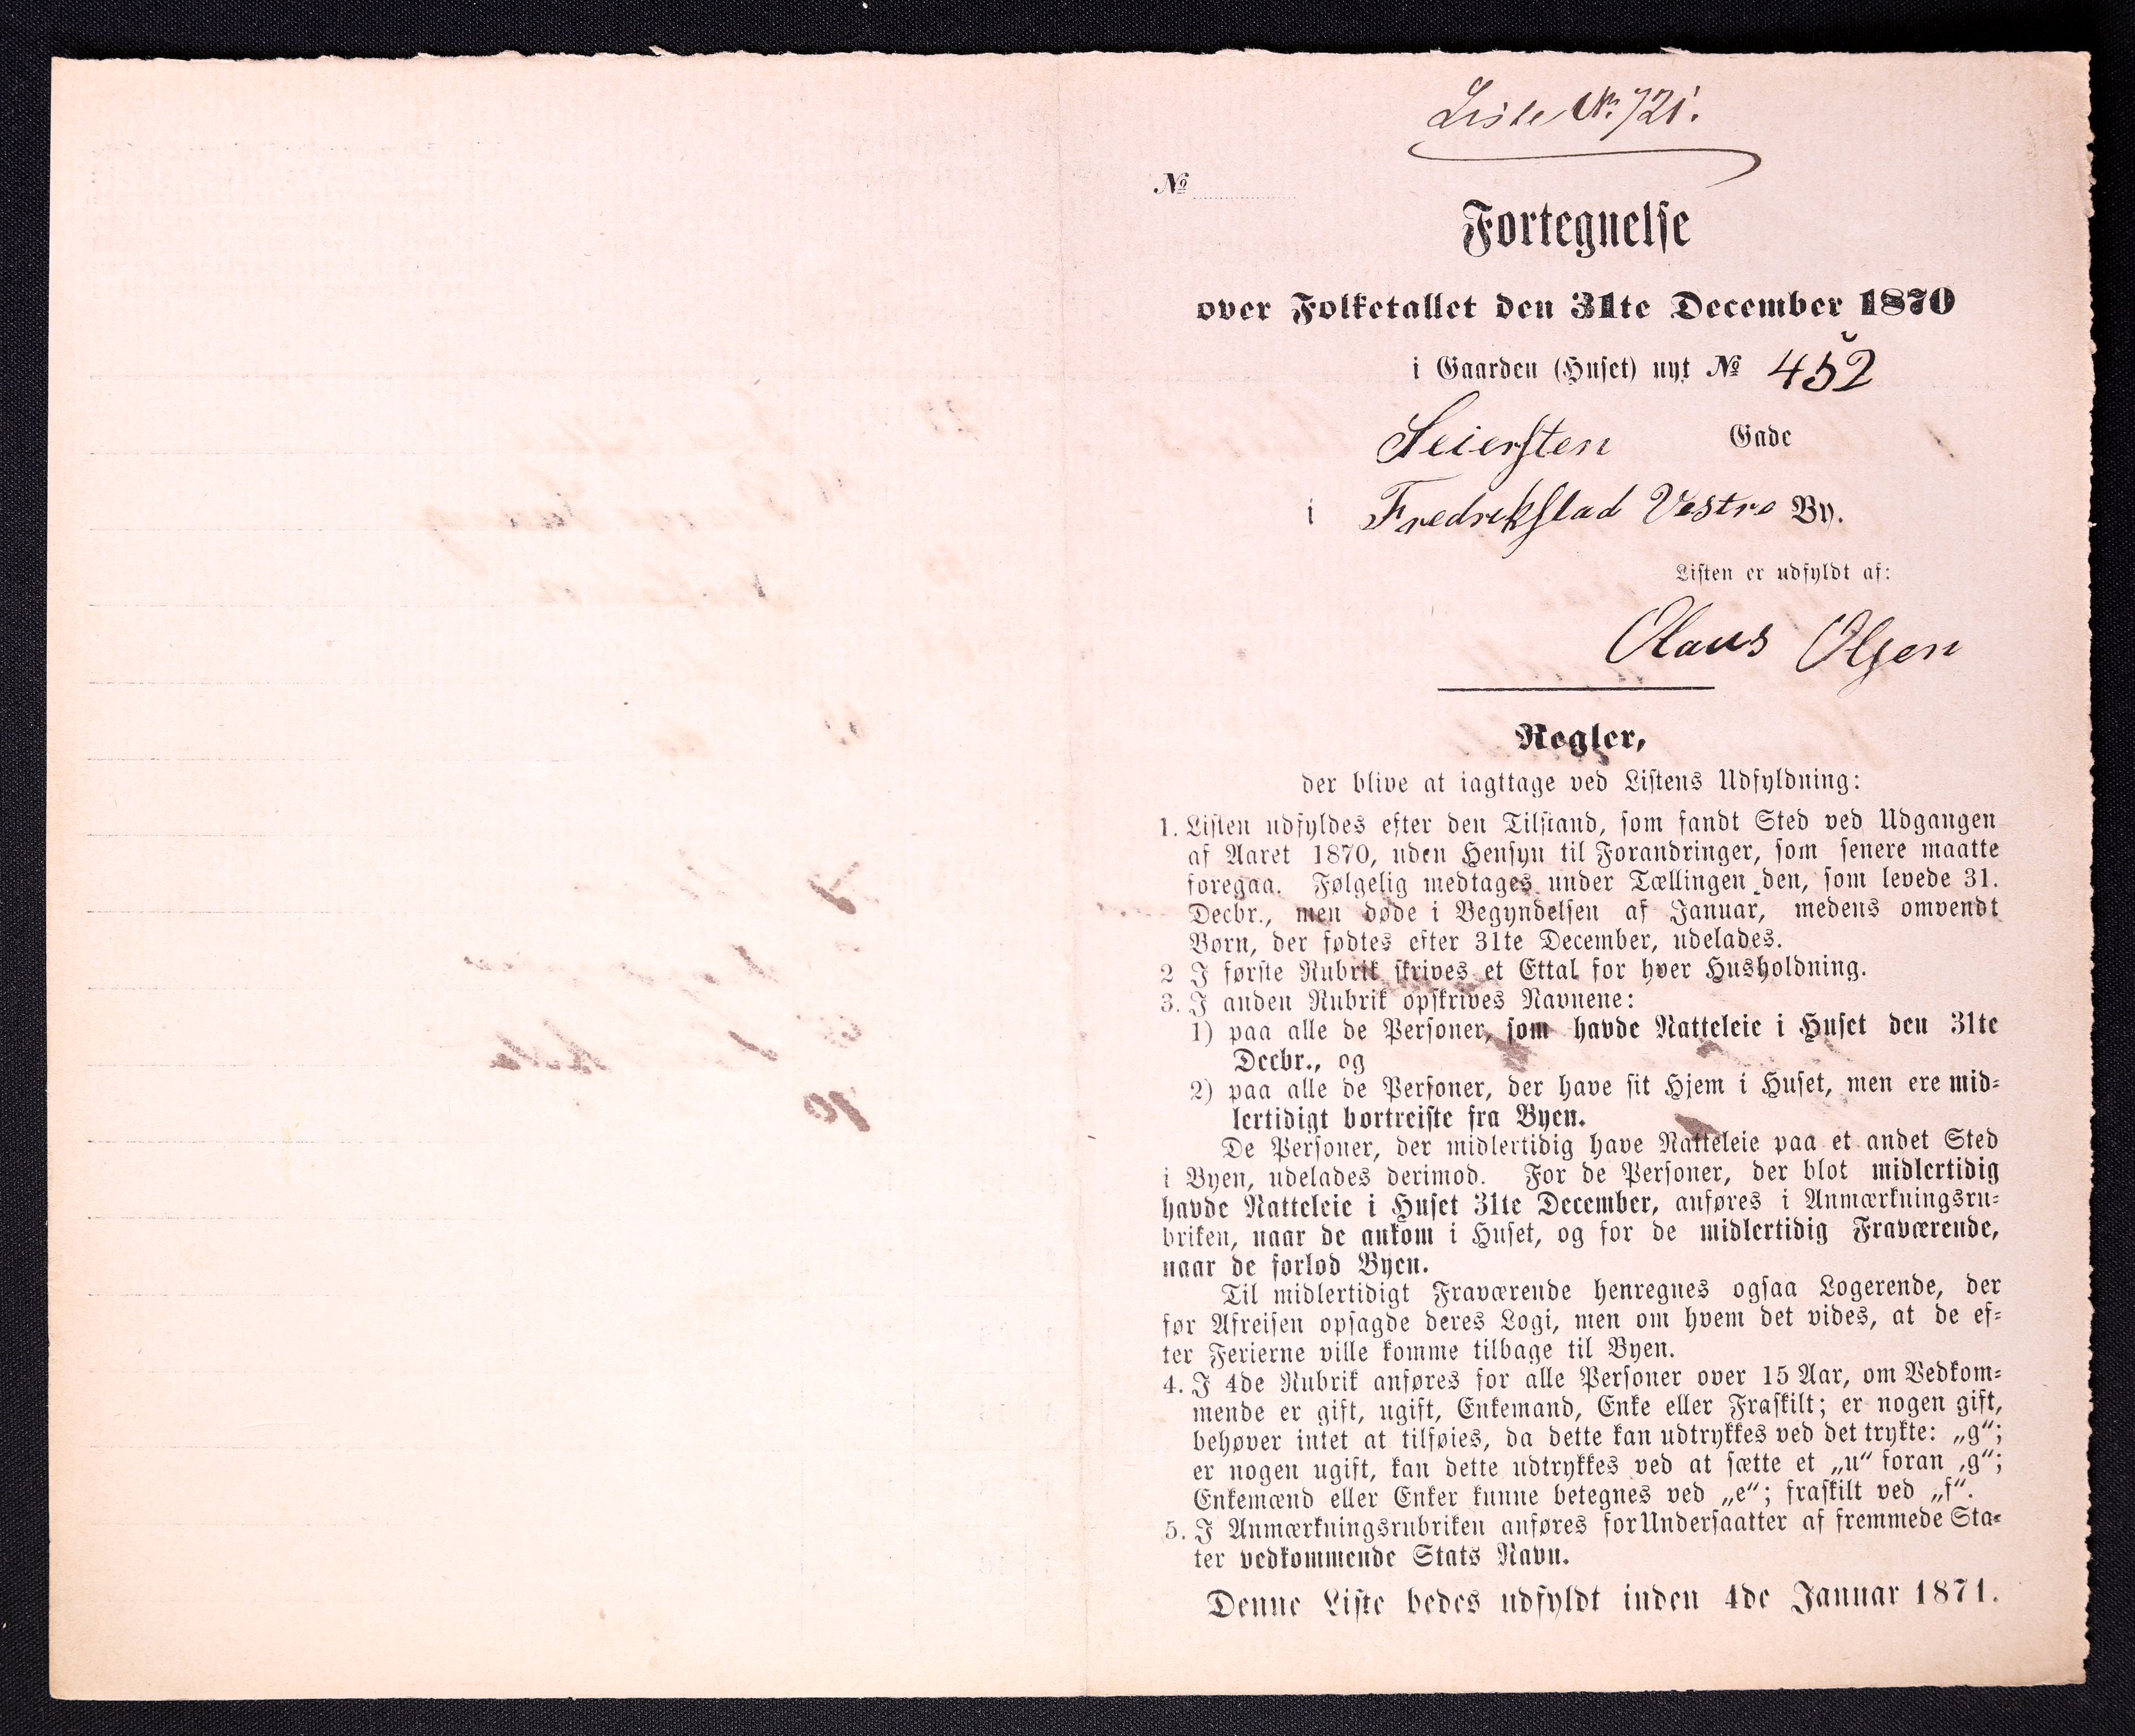 Liste No. 721.
No
Fortegnelse
over Folketallet den 31te December 1870
i Gaarden (Huset) nyt No 452
Seiersten Gade
i Fredrikstad Vestre By.
Listen er udfyldt af:
Olaus Olsen
Regler,
der blive at iagttage ved Listens Udfyldning:
1. Listen udfyldes efter den Tilstand, som fandt Sted ved Udgangen
af Aaret 1870, uden Hensyn til Forandringer, som senere maatte
foregaa. Følgelig medtages under Tællingen den, som levede 31.
Decbr., men døde i Begyndelsen af Januar, medens omvendt
Børn, der fødtes efter 31te December, udelades.
2 I første Rubrik skrives et Ettal for hver Husholdning.
3. I anden Rubrik opskrives Navnene:
1) paa alle de Personer, som havde Natteleie i Huset den 31te
Decbr., og
2) paa alle de Personer, der have sit Hjem i Huset, men ere mid-
lertidigt bortreiste fra Byen.
De Personer, der midlertidig have Natteleie paa et andet Sted
i Byen, udelades derimod. For de Personer, der blot midlertidig
havde Natteleie i Huset 31te December, anføres i Anmærkningsru-
briken, naar de ankom i Huset, og for de midlertidig Fraværende,
naar de forlod Byen.
Til midlertidigt Fraværende henregnes ogsaa Logerende, der
før Afreisen opsagde deres Logi, men om hvem det vides, at de ef-
ter Ferierne ville komme tilbage til Byen.
4. I 4de Rubrik anføres for alle Personer over 15 Aar, om Vedkom-
mende er gift, ugift, Enkemand, Enke eller Fraskilt; er nogen gift,
behøver intet at tilføies, da dette kan udtrykkes ved det trykte: „g“;
er nogen ugift, kan dette udtrykkes ved at sætte et „u“ foran ‚g“;
Enkemænd eller Enker kunne betegnes ved „e“; fraskilt ved „f“.
5. I Anmærkningsrubriken anføres for Undersaatter af fremmede Sta-
ter vedkommende Stats Navn.
Denne Liste bedes udfyldt inden 4de Januar 1871.